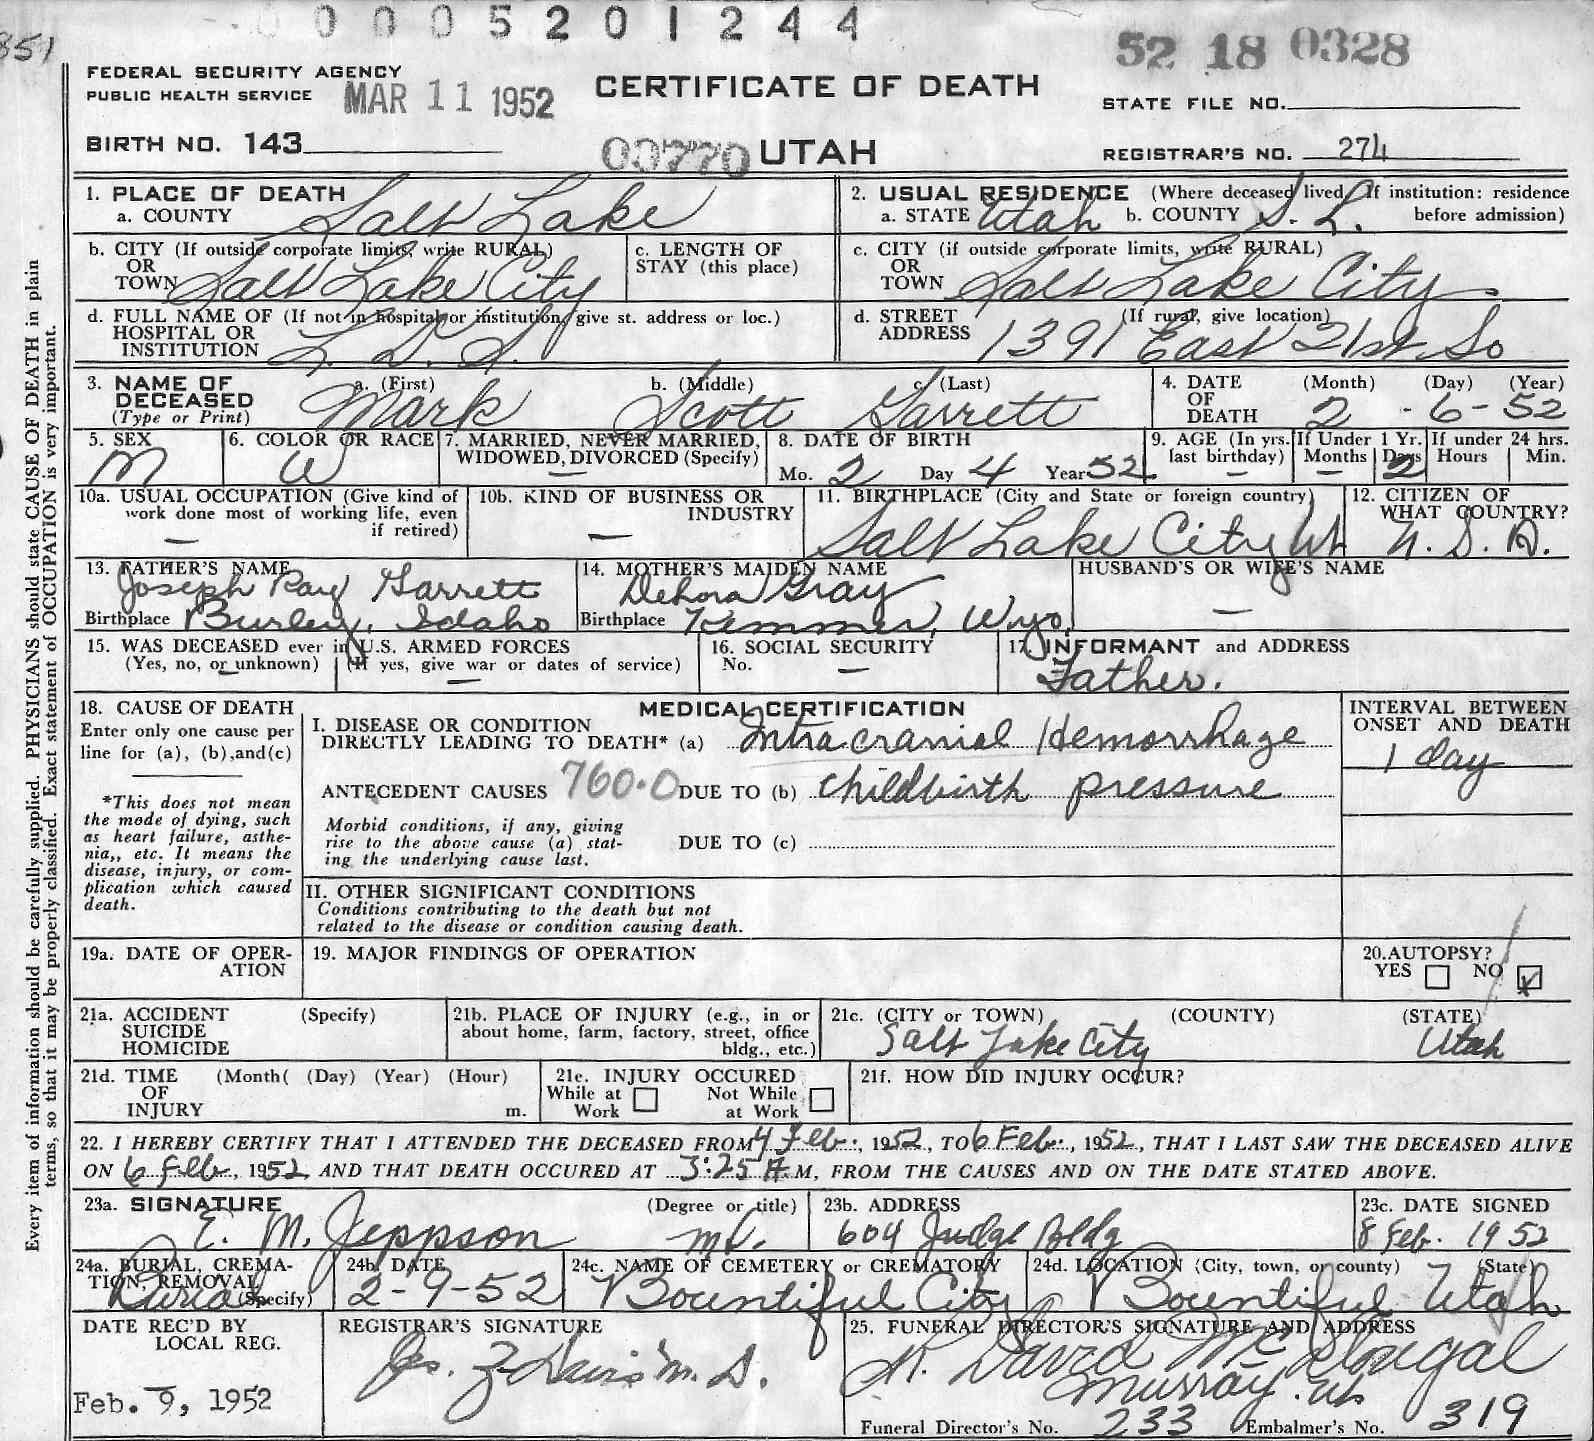 0 0 0 0 5 2 0 1 2 4 4
851
52 18 0328
FEDERAL SECURITY AGENCY
PUBLIC HEALTH SERVICE MAR 11 1952
CERTIFICATE OF DEATH
STATE FILE NO.
BIRTH NO. 143
00770 UTAH
REGISTRAR'S NO. 274
Every item of information should be carefully supplied. PHYSICIANS should state CAUSE OF DEATH in plain
terms, so that it may be properly classified. Exact statement of OCCUPATION is very important.
1. PLACE OF DEATH
a. COUNTY Salt Lake
2. USUAL RESIDENCE (Where deceased lived. If institution: residence
a. STATE Utah b. COUNTY S. L. before admission)
b. CITY (If outside corporate limits, write RURAL)
OR
TOWN Salt Lake City
c. LENGTH OF
STAY (this place)
c. CITY (if outside corporate limits, write RURAL)
OR
TOWN Salt Lake City
d. FULL NAME OF (If not in hospital or institution, give st. address or loc.)
HOSPITAL OR
INSTITUTION L. D. S.
d. STREET (If rural, give location)
ADDRESS 1391 East 21st So
3. NAME OF a. (First) b. (Middle) c. (Last)
DECEASED Mark Scott Garrett
(Type or Print)
4. DATE (Month) (Day) (Year)
OF
DEATH 2 - 6 - 52
5. SEX
M
6. COLOR OR RACE
W
7. MARRIED, NEVER MARRIED,
WIDOWED, DIVORCED (Specify)
—
8. DATE OF BIRTH
Mo. 2 Day 4 Year 52
9. AGE (In yrs.
last birthday)
—
If Under 1 Yr.
Months Days
— 2
If under 24 hrs.
Hours Min.
10a. USUAL OCCUPATION (Give kind of
work done most of working life, even
if retired)
—
10b. KIND OF BUSINESS OR
INDUSTRY
—
11. BIRTHPLACE (City and State or foreign country)
Salt Lake City Ut
12. CITIZEN OF
WHAT COUNTRY?
U. S. A.
13. FATHER'S NAME
Joseph Ray Garrett
Birthplace Burley, Idaho
14. MOTHER'S MAIDEN NAME
Dehora Gray
Birthplace Kemmer, Wyo.
HUSBAND'S OR WIFE'S NAME
—
15. WAS DECEASED ever in U.S. ARMED FORCES
(Yes, no, or unknown) (If yes, give war or dates of service)
— —
16. SOCIAL SECURITY
No. —
17. INFORMANT and ADDRESS
Father.
18. CAUSE OF DEATH
Enter only one cause per
line for (a), (b),and(c)
*This does not mean
the mode of dying, such
as heart failure, asthe-
nia,, etc. It means the
disease, injury, or com-
plication which caused
death.
MEDICAL CERTIFICATION
I. DISEASE OR CONDITION
DIRECTLY LEADING TO DEATH* (a) Intracranial Hemorrhage
ANTECEDENT CAUSES 760.0 DUE TO (b) Childbirth pressure
Morbid conditions, if any, giving
rise to the above cause (a) stat-
ing the underlying cause last.
DUE TO (c)
II. OTHER SIGNIFICANT CONDITIONS
Conditions contributing to the death but not
related to the disease or condition causing death.
INTERVAL BETWEEN
ONSET AND DEATH
1 day
19a. DATE OF OPER-
ATION
19. MAJOR FINDINGS OF OPERATION
20. AUTOPSY?
YES NO x
21a. ACCIDENT (Specify)
SUICIDE
HOMICIDE
21b. PLACE OF INJURY (e.g., in or
about home, farm, factory, street, office
bldg., etc.)
21c. (CITY or TOWN) (COUNTY) (STATE)
Salt Lake City Utah
21d. TIME (Month( (Day) (Year) (Hour)
OF
INJURY m.
21e. INJURY OCCURED
While at Not While
Work at Work
21f. HOW DID INJURY OCCUR?
22. I HEREBY CERTIFY THAT I ATTENDED THE DECEASED FROM 4 Feb., 1952, TO 6 Feb., 1952, THAT I LAST SAW THE DECEASED ALIVE
ON 6 Feb, 1952 AND THAT DEATH OCCURED AT 3:25 A.M, FROM THE CAUSES AND ON THE DATE STATED ABOVE.
23a. SIGNATURE (Degree or title)
E. M. Jeppson M.D.
23b. ADDRESS
604 Judge Bldg
23c. DATE SIGNED
8 Feb. 1952
24a. BURIAL, CREMA-
TION, REMOVAL
Burial (Specify)
24b. DATE
2-9-52
24c. NAME OF CEMETERY or CREMATORY
Bountiful City
24d. LOCATION (City, town, or county) (State)
Bountiful Utah
DATE REC'D BY
LOCAL REG.
Feb. 9, 1952
REGISTRAR'S SIGNATURE
Jas. Z Davis M. D.
25. FUNERAL DIRECTOR'S SIGNATURE AND ADDRESS
K. David McDougal
Murray. Ut
Funeral Director's No. 233 Embalmer's No. 319